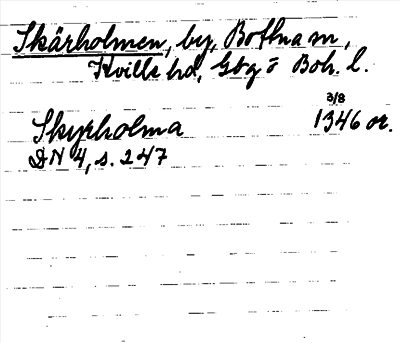 Skärholmen, by, Bottna sn,
Kville hd, Gbg o Boh. l.
3/8
Skyrholma 1346 or.
DN 4, s. 247